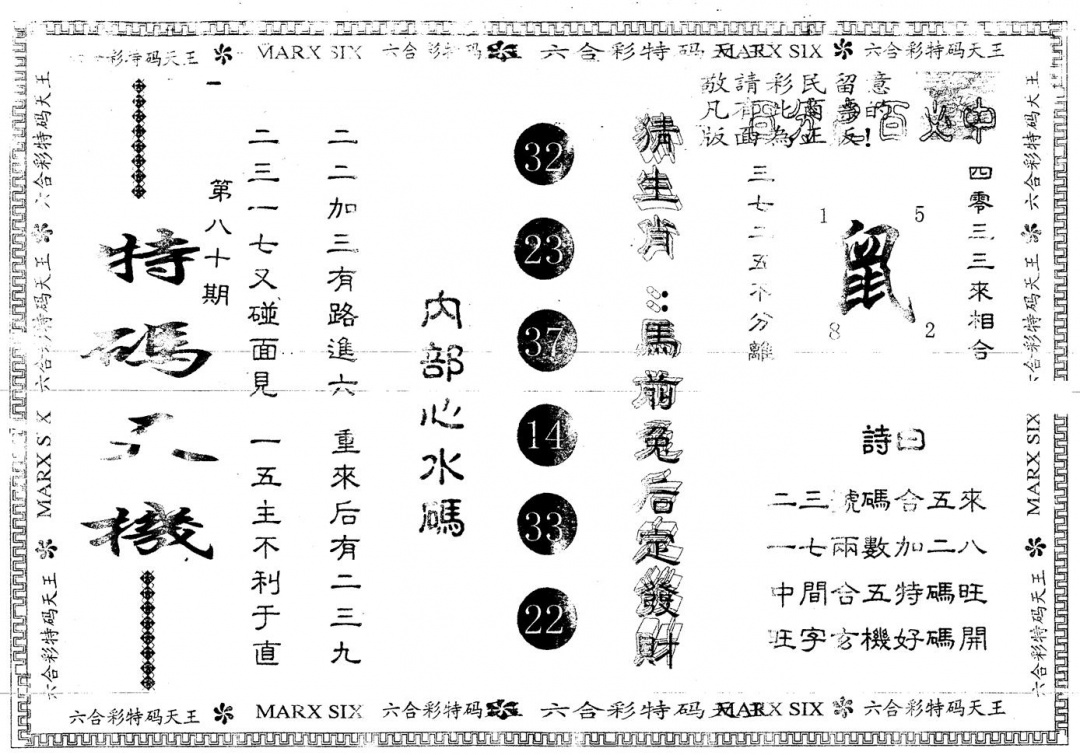 六合彩特码天王 MARX SIX 六合彩特码 六合彩特码天王 MARX SIX 六合彩特码天王
敬請彩民留意
百分百 中
四零三三來相合
1 5
鼠
8 2
三七二五不分離
詩曰
二三號碼合五來
一七兩數加二八
中間合五特碼旺
旺字玄機好碼開
猜生肖:馬前兔后定發財
32
23
37
14
33
22
內部心水碼
二二加三有路進六 重來后有二三九
二三一七又碰面見 一五主不利于直
第八十期
特碼天機
六合彩特码天王 六合彩特码天王 MARX SIX 六合彩特码天王
六合彩特码天王 六合彩特码天王 MARX SIX 六合彩特码天王
六合彩特码天王 MARX SIX 六合彩特码 六合彩特码天王 MARX SIX 六合彩特码天王